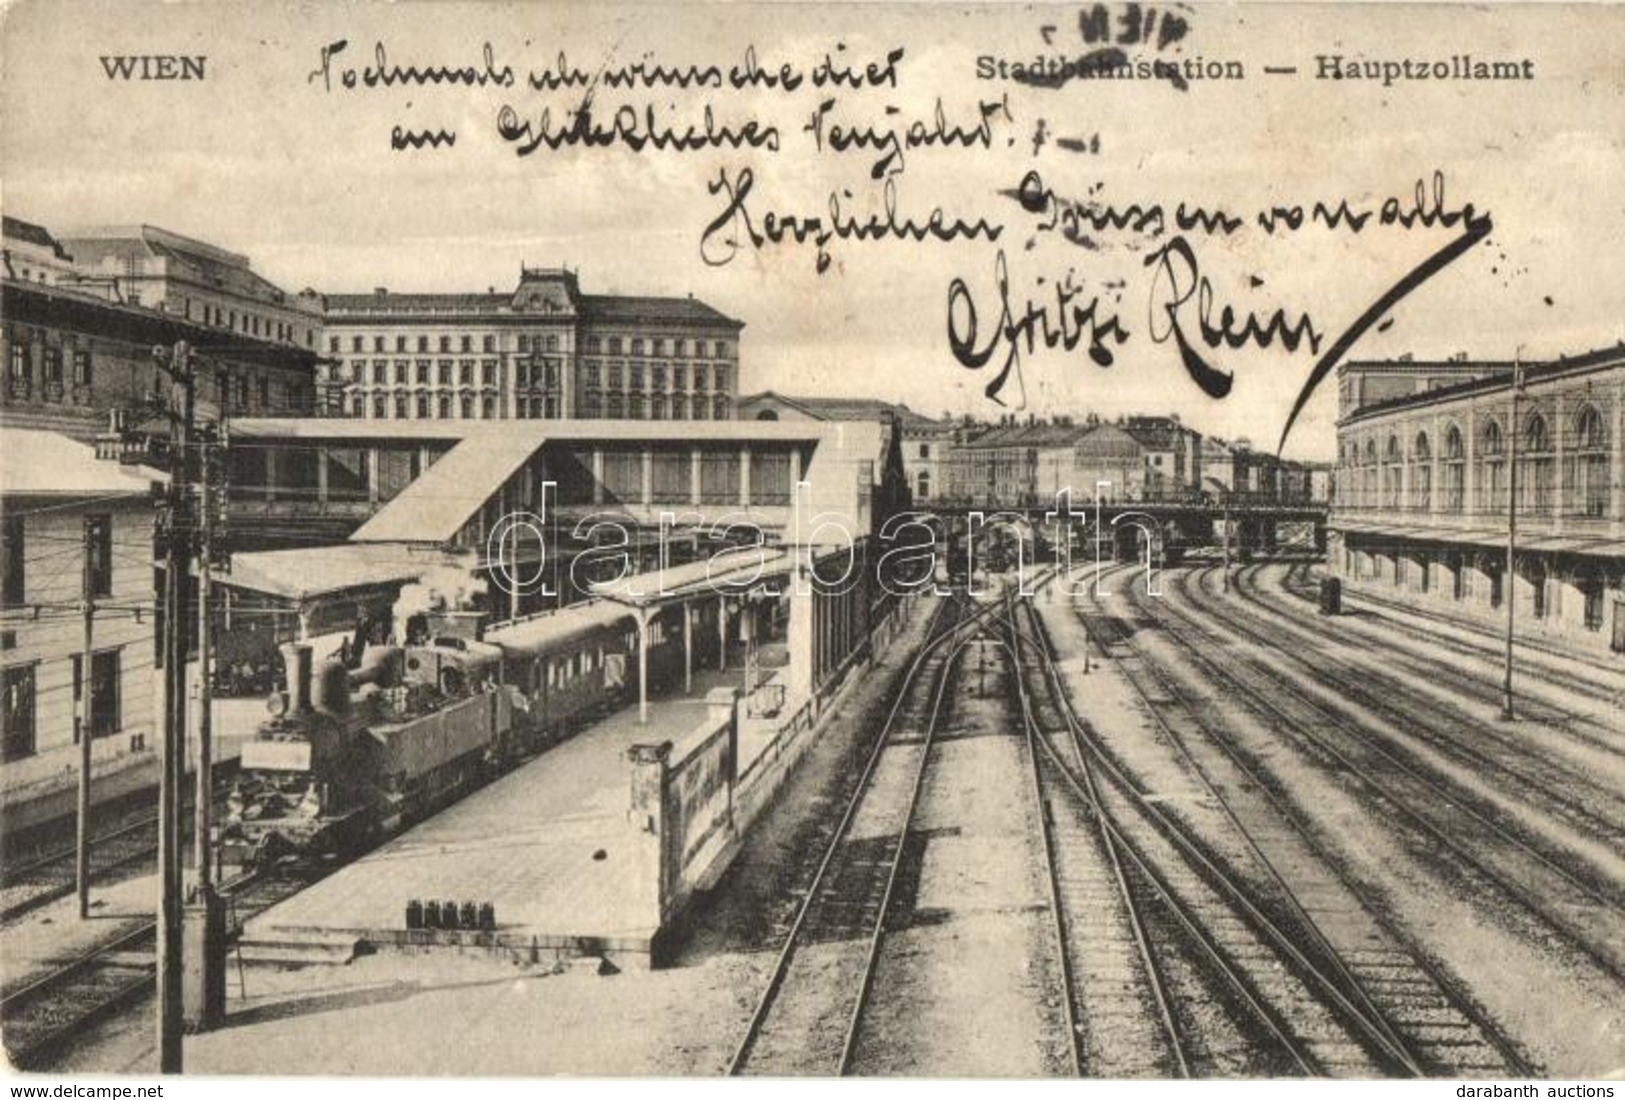 WIEN
WIEN
Stadtbahnstation — Hauptzollamt
Nochmals ich wünsche dier
ein Glückliches Neujahr!
Herzlichen Grüssen von alle
Fritzi Klein
darabanth
www.darabanth.com
darabanth auctions